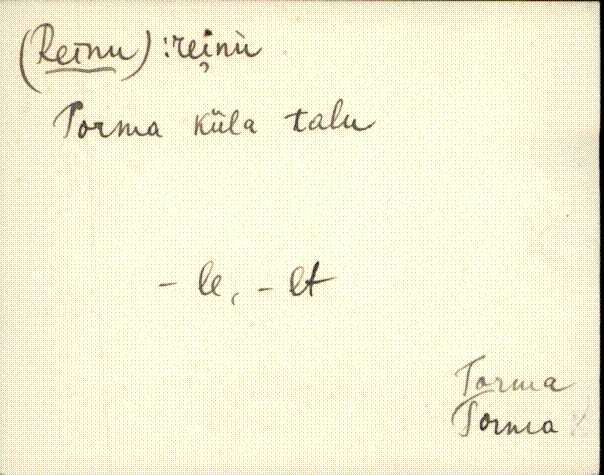 (Reinu) :rei̯nù
Torma küla talu
- le, - lt
Torma
Torma